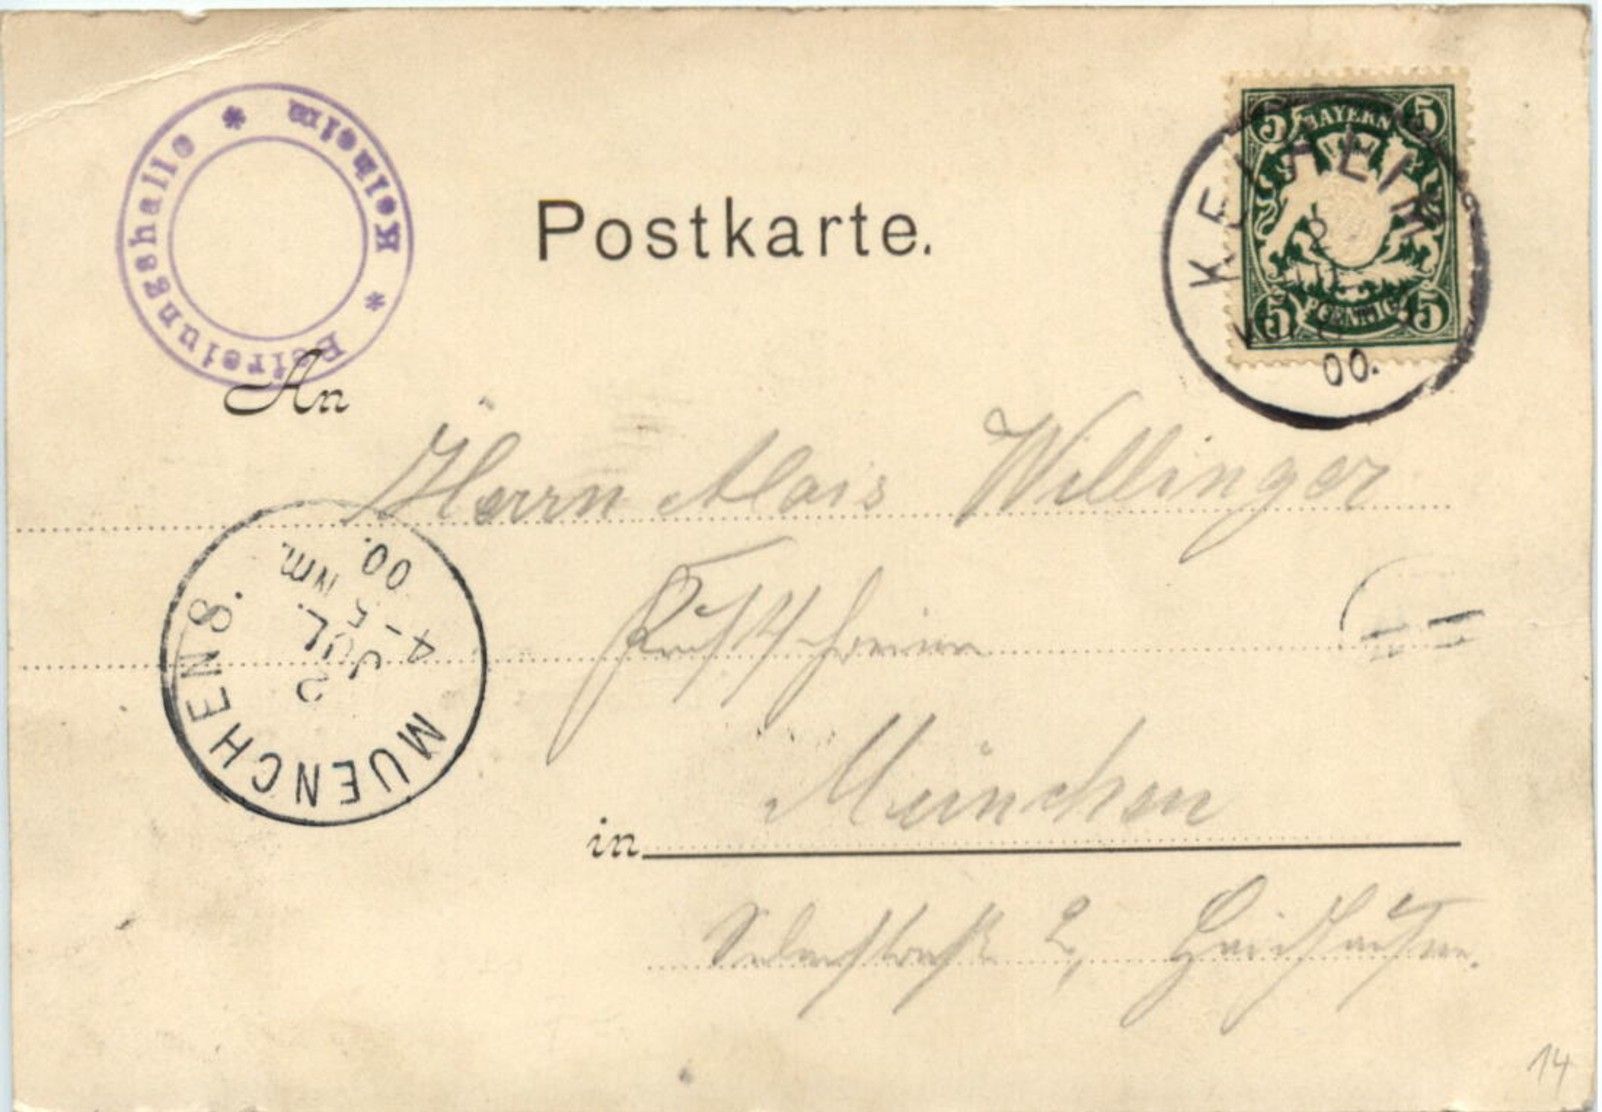 Befreiungshalle * Kelheim *
BAYERN
5 5
PFENNIG
5 5
KELHEIM
2
00.
Postkarte.
An
Herrn Alois Willinger
MUENCHEN 8.
2
JUL.
4-5 Nm.
00.
München
in
2, Haidhausen.
14